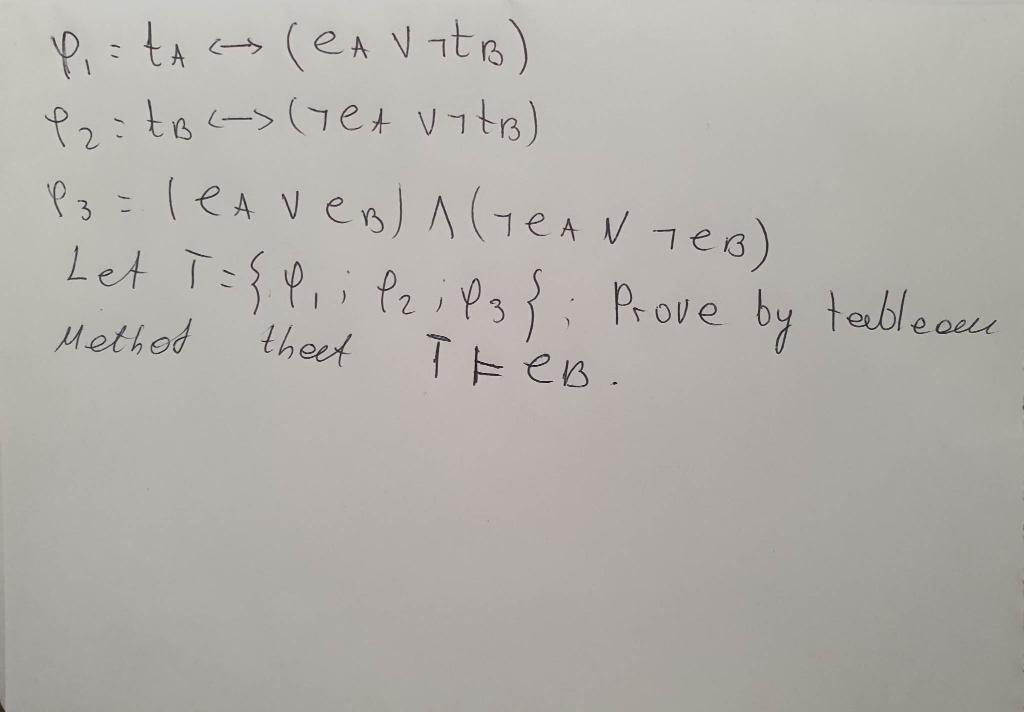 φ₁ = t_A ↔ (e_A ∨ ¬t_B)
φ₂ = t_B ↔ (¬e_A ∨ ¬t_B)
φ₃ = (e_A ∨ e_B) ∧ (¬e_A ∨ ¬e_B)
Let T = {φ₁; φ₂; φ₃}; Prove by tableau
Method that T ⊨ e_B.